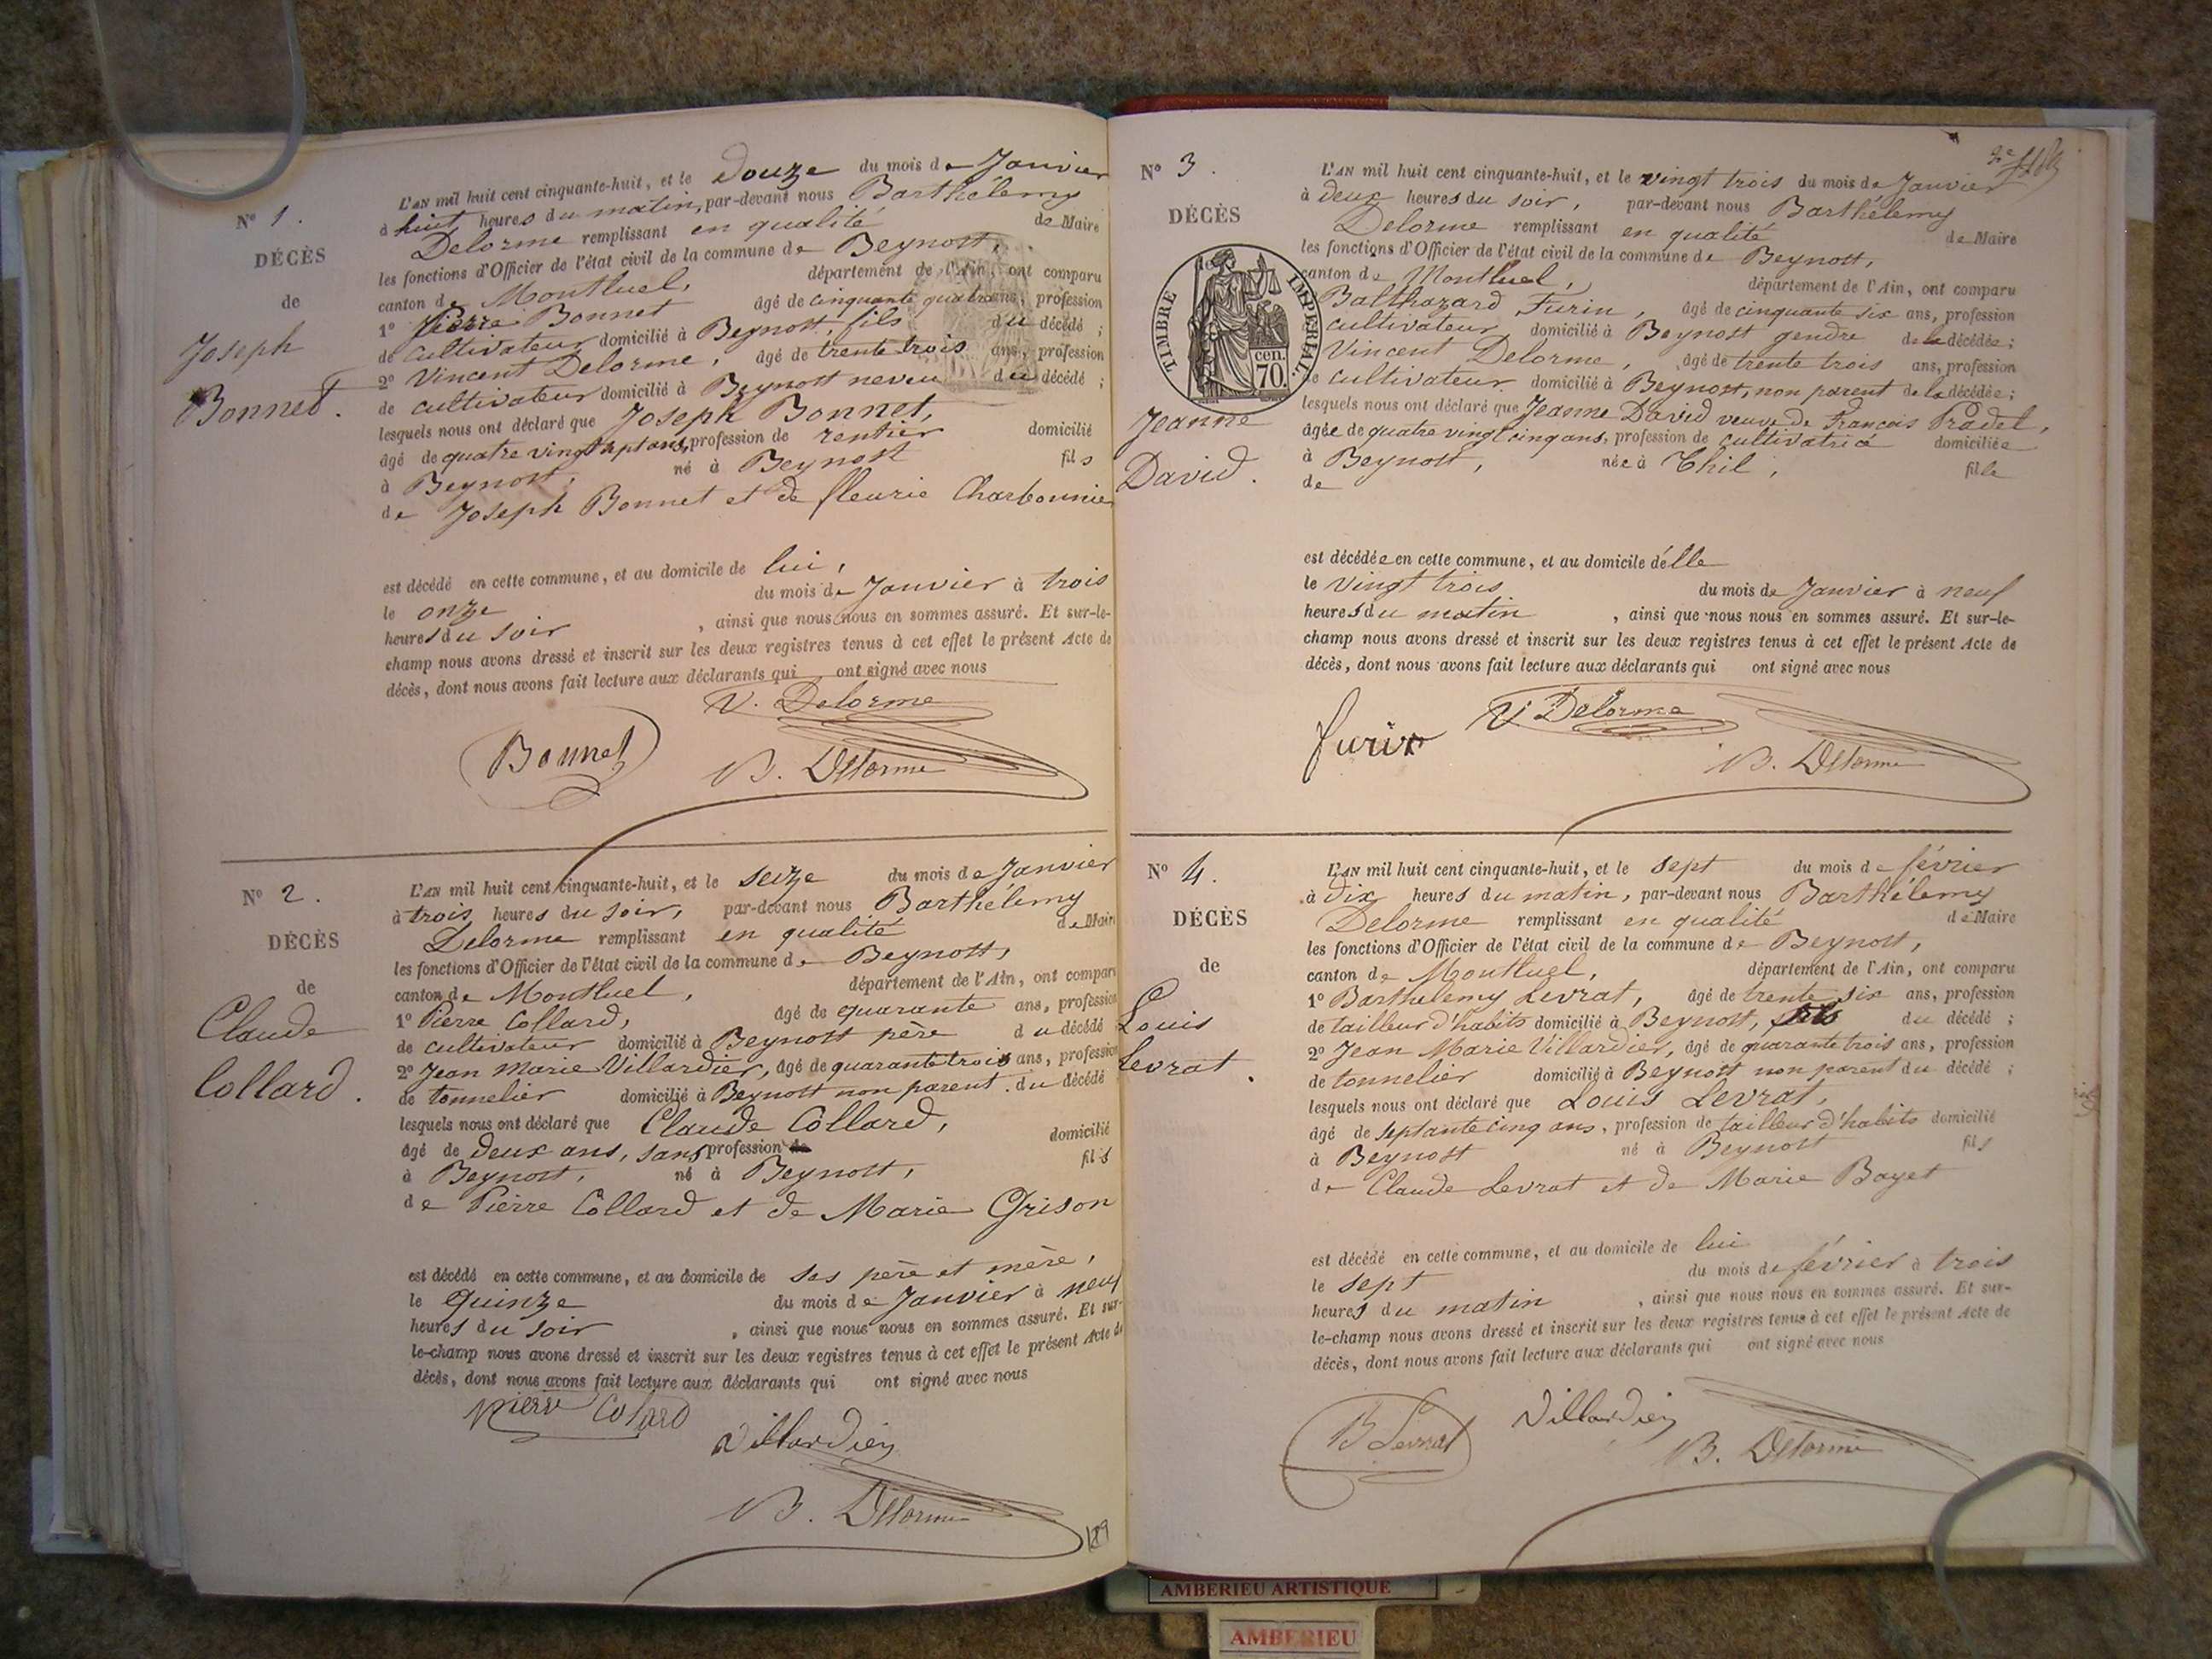 N° 1.
DÉCÈS
de
Joseph
Bonnet.
L'AN mil huit cent cinquante-huit, et le douze du mois de Janvier
à huit heures du matin, par-devant nous Barthélemy
Delorme remplissant en qualité de Maire
les fonctions d'Officier de l'état civil de la commune de Beynost,
canton de Montluel, département de l'Ain, ont comparu
1° Pierre Bonnet âgé de cinquante quatre ans, profession
de cultivateur domicilié à Beynost, fils du décédé ;
2° Vincent Delorme, âgé de trente trois ans, profession
de cultivateur domicilié à Beynost neveu du décédé ;
lesquels nous ont déclaré que Joseph Bonnet,
âgé de quatre vingt sept ans, profession de rentier domicilié
à Beynost, né à Beynost fils
de Joseph Bonnet et de fleurie Charbonnier
est décédé en cette commune, et au domicile de lui,
le onze du mois de Janvier à trois
heures du soir, ainsi que nous nous en sommes assuré. Et sur-le-
champ nous avons dressé et inscrit sur les deux registres tenus à cet effet le présent Acte de
décès, dont nous avons fait lecture aux déclarants qui ont signé avec nous
V. Delorme
Bonnet
B. Delorme
N° 2.
DÉCÈS
de
Claude
Collard.
L'AN mil huit cent cinquante-huit, et le seize du mois de Janvier
à trois heures du soir, par-devant nous Barthélemy
Delorme remplissant en qualité de Maire
les fonctions d'Officier de l'état civil de la commune de Beynost,
canton de Montluel, département de l'Ain, ont comparu
1° Pierre Collard, âgé de quarante ans, profession
de cultivateur domicilié à Beynost père du décédé
2° Jean Marie Villardier, âgé de quarante trois ans, profession
de tonnelier domicilié à Beynost non parent du décédé
lesquels nous ont déclaré que Claude Collard,
âgé de deux ans, sans profession de domicilié
à Beynost, né à Beynost, fils
de Pierre Collard et de Marie Grison
est décédé en cette commune, et au domicile de ses père et mère,
le quinze du mois de Janvier à neuf
heures du soir, ainsi que nous nous en sommes assuré. Et sur-
le-champ nous avons dressé et inscrit sur les deux registres tenus à cet effet le présent Acte de
décès, dont nous avons fait lecture aux déclarants qui ont signé avec nous
Pierre Colard
Villardier
B. Delorme
189
N° 3.
DÉCÈS
de
TIMBRE IMPERIAL.
70 cen.
Jeanne
David.
L'AN mil huit cent cinquante-huit, et le vingt trois du mois de Janvier
à deux heures du soir, par-devant nous Barthélemy
Delorme remplissant en qualité de Maire
les fonctions d'Officier de l'état civil de la commune de Beynost,
canton de Montluel, département de l'Ain, ont comparu
Balthazard Furin, âgé de cinquante six ans, profession
cultivateur domicilié à Beynost gendre de la décédée ;
Vincent Delorme, âgé de trente trois ans, profession
de cultivateur domicilié à Beynost, non parent de la décédée ;
lesquels nous ont déclaré que Jeanne David veuve de francois Pradel,
âgée de quatre vingt cinq ans, profession de cultivatrice domiciliée
à Beynost, née à Thil, fille
de
est décédée en cette commune, et au domicile d'élle
le vingt trois du mois de Janvier à neuf
heures du matin, ainsi que nous nous en sommes assuré. Et sur-le-
champ nous avons dressé et inscrit sur les deux registres tenus à cet effet le présent Acte de
décès, dont nous avons fait lecture aux déclarants qui ont signé avec nous
furin
V Delorme
B. Delorme
N° 4.
DÉCÈS
de
Louis
Levrat.
L'AN mil huit cent cinquante-huit, et le sept du mois de février
à dix heures du matin, par-devant nous Barthélemy
Delorme remplissant en qualité de Maire
les fonctions d'Officier de l'état civil de la commune de Beynost,
canton de Montluel, département de l'Ain, ont comparu
1° Barthelemy Levrat, âgé de trente six ans, profession
de tailleur d'habits domicilié à Beynost, fils du décédé ;
2° Jean Marie Villardier, âgé de quarante trois ans, profession
de tonnelier domicilié à Beynost non parent du décédé ;
lesquels nous ont déclaré que Louis Levrat,
âgé de septante cinq ans, profession de tailleur d'habits domicilié
à Beynost né à Beynost fils
de Claude Levrat et de Marie Bayet
est décédé en cette commune, et au domicile de lui
le sept du mois de février à trois
heures du matin, ainsi que nous nous en sommes assuré. Et sur-
le-champ nous avons dressé et inscrit sur les deux registres tenus à cet effet le présent Acte de
décès, dont nous avons fait lecture aux déclarants qui ont signé avec nous
B Levrat
Villardier
B. Delorme
AMBERIEU ARTISTIQUE
AMBERIEU